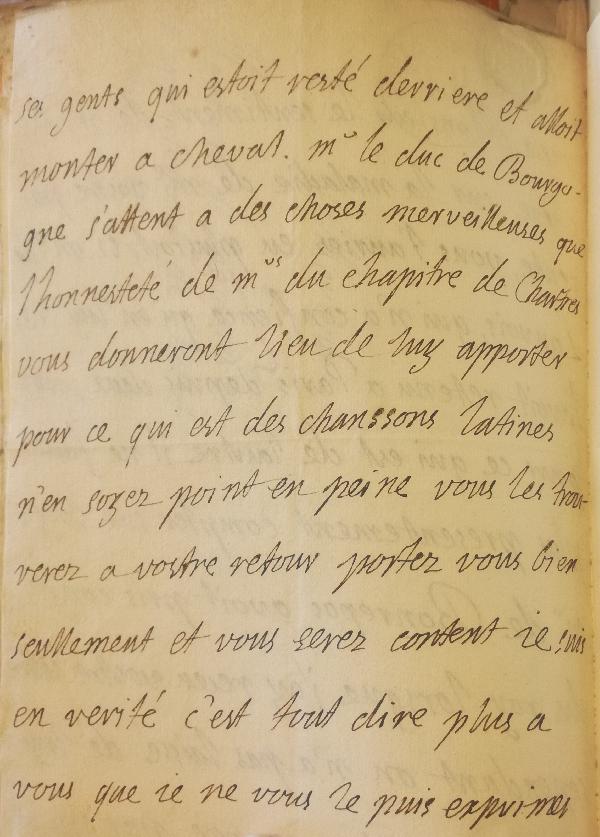 ses gents qui estoit resté derriere et alloit
monter a cheval. mr le duc de Bourgo-
gne s'attent a des choses merveilleuses que
l'honnesteté de mrs du chapitre de Chartres
vous donneront lieu de luy apporter
pour ce qui est des chanssons latines
n'en soyez point en peine vous les trou-
verez a vostre retour portez vous bien
seullement et vous serez content ie suis
en verité c'est tout dire plus a
vous que ie ne vous le puis exprimer